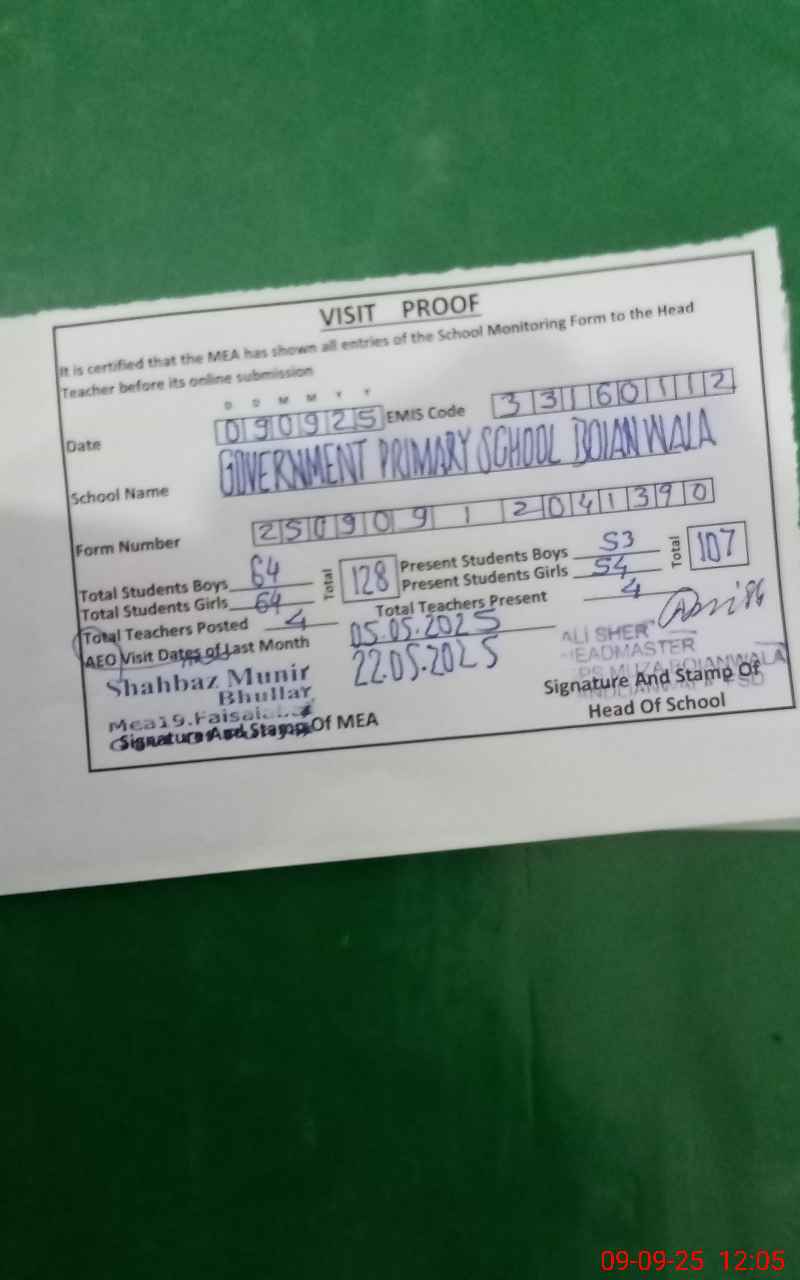 VISIT PROOF
It is certified that the MEA has shown all entries of the School Monitoring Form to the Head
Teacher before its online submission
D D M M Y Y
Date 090925 EMIS Code 33160112
School Name GOVERNMENT PRIMARY SCHOOL BOIANWALA
Form Number 250909 1 2041390
Total Students Boys 64 Total 128 Present Students Boys 53 Total 107
Total Students Girls 64 Present Students Girls 54
Total Teachers Posted 4 Total Teachers Present 4
AEO Visit Dates of Last Month 05.05.2025
22.05.2025
Shahbaz Munir
Bhullar
Mea19.Faisal
Signature And Stamp Of MEA
ALI SHER
HEADMASTER
BOIANWALA
Signature And Stamp Of
Head Of School
09-09-25 12:05